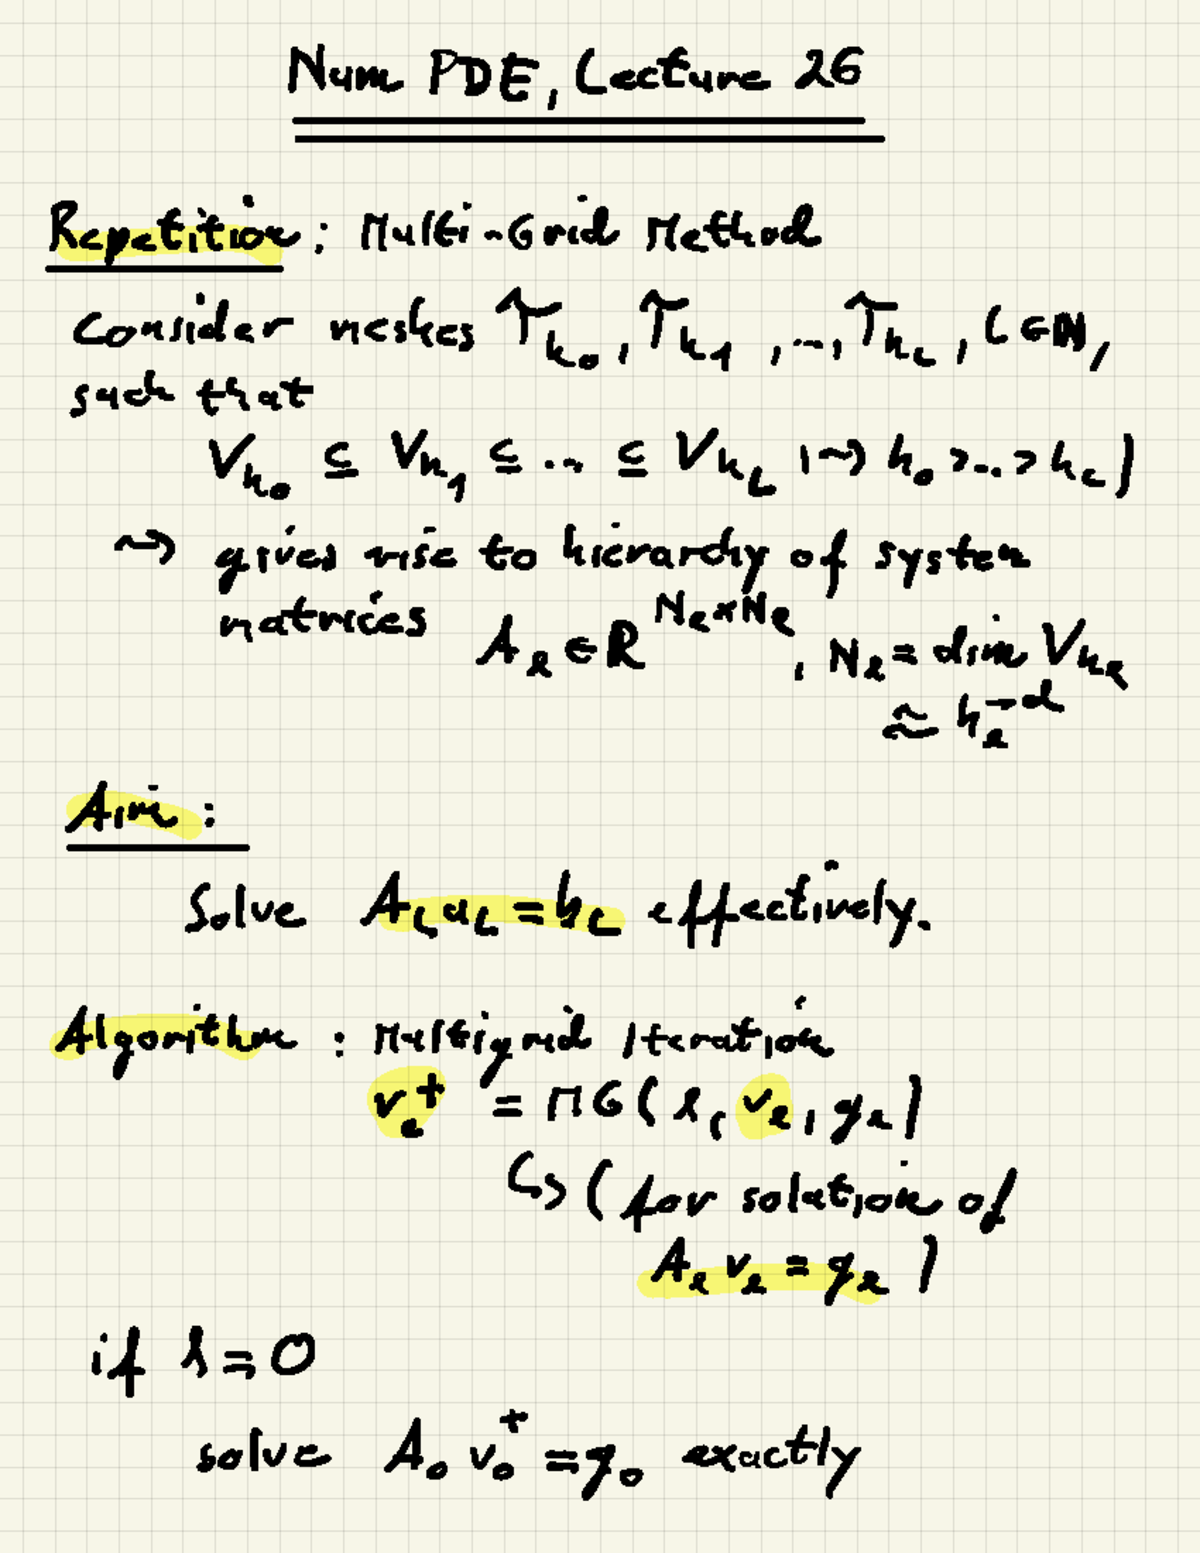 Num PDE, Lecture 26
Repetition: Multi-Grid Method
Consider meshes 𝒯_{h_0}, 𝒯_{h_1}, ..., 𝒯_{h_L}, L ∈ ℕ,
such that
V_{h_0} ⊆ V_{h_1} ⊆ ... ⊆ V_{h_L} (⇝ h_0 > ... > h_L)
⇝ gives rise to hierarchy of system
matrices A_ℓ ∈ ℝ^{N_ℓ×N_ℓ}, N_ℓ = dim V_{h_ℓ}
≂ h_ℓ^{-d}
Aim:
Solve A_L u_L = b_L effectively.
Algorithm: Multigrid Iteration
v_ℓ^+ = MG(ℓ, v_ℓ, g_ℓ)
↪ (for solution of
A_ℓ v_ℓ = g_ℓ)
if ℓ = 0
solve A_0 v_0^+ = g_0 exactly